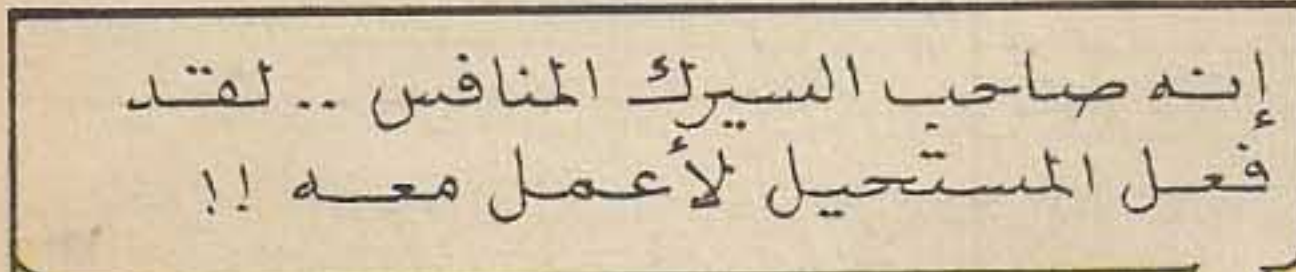 إنه صاحب السيرك المنافس .. لقد
فعل المستحيل لأعمل معه !!